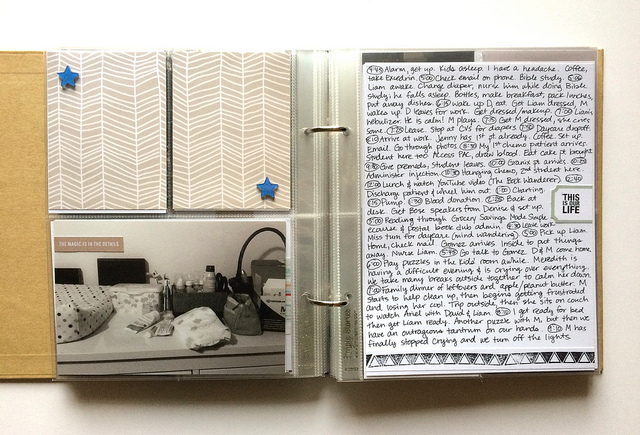 THE MAGIC IS IN THE DETAILS
4:45 Alarm, get up. Kids asleep. I have a headache. Coffee,
take Excedrin. 5:00 Check email on phone. Bible study. 5:06
Liam awake. Change diaper, nurse him while doing Bible
study; he falls asleep. Bottles, make breakfast, pack lunches,
put away dishes. 6:15 wake up D, eat. Get Liam dressed, M
wakes up. D leaves for work. Get dressed/makeup. 7:00 Liam's
nebulizer. He is calm! M plays. 7:15 Get M dressed, she cries
some. 7:25 Leave. Stop at CVS for diapers 7:50 Daycare dropoff.
8:10 Arrive at work. Jenny has 1st pt already. Coffee. Set up.
Email. Go through photos 8:30 My 1st chemo patient arrives.
Student here too. Access PAC, draw blood. Eat cake pt brought
Give premeds, student leaves. Granix pt arrives.
Administer injection. Hanging chemo, 2nd pt student here.
12:00 Lunch & watch YouTube video (The Book Wanderer)
Discharge patient & wheel him out. 1:00 Charting.
1:15 Pump. 1:30 Blood donation. Back at
desk. Get Bose speakers from Denise & set up.
Reading through Grocery Savings Made Simple
ecourse & postal book club admin. Leave work
Miss turn for daycare (mind wandering) 5:00 Pick up Liam.
Home, check mail. Gomez arrives. Inside to put things
away. Nurse Liam. 5:45 Go talk to Gomez. D & M come home
6:00 Play puzzles in the kids' room awhile. Meredith is
having a difficult evening & is crying over everything.
We take many breaks outside together to calm her down
7:00 Family dinner of leftovers and apple/peanut butter. M
starts to help clean up, then begins getting frustrated
and losing her cool. Trip outside, then she sits on couch
to watch Ariel with David & Liam. I get ready for bed
then get Liam ready. Another puzzle with M, but then we
have an outrageous tantrum on our hands. 9:10 M has
finally stopped crying and we turn off the lights.
THIS
IS OUR
LIFE